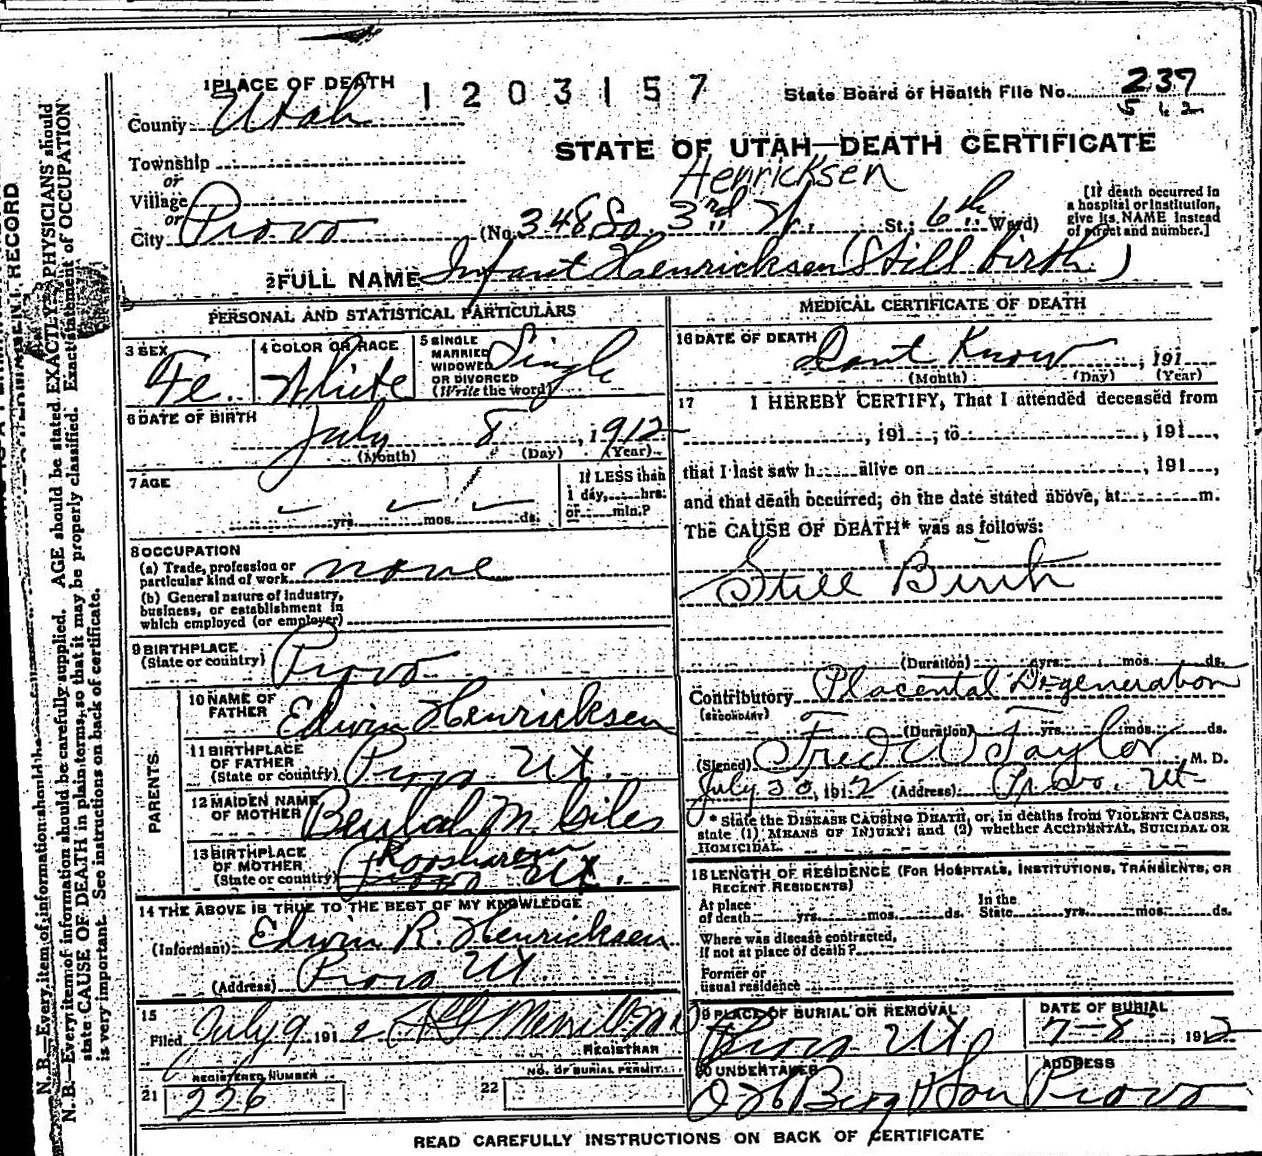 1 PLACE OF DEATH
1203157
State Board of Health File No. 237
562
County Utah
STATE OF UTAH—DEATH CERTIFICATE
Township
or
Henricksen
Village
or
City Provo (No. 348 So. 3rd W. St.; 6th Ward)
[If death occurred in
a hospital or institution,
give its NAME instead
of street and number.]
2 FULL NAME Infant Henricksen (Still birth)
PERSONAL AND STATISTICAL PARTICULARS
3 SEX Fe.
4 COLOR OR RACE White
5 SINGLE
MARRIED
WIDOWED
OR DIVORCED
(Write the word) Single
6 DATE OF BIRTH
July 8, 1912
(Month) (Day) (Year)
7 AGE
yrs. mos. ds.
If LESS than
1 day, hrs.
or min.?
8 OCCUPATION
(a) Trade, profession or
particular kind of work none
(b) General nature of industry,
business, or establishment in
which employed (or employer)
9 BIRTHPLACE
(State or country) Provo
PARENTS
10 NAME OF
FATHER Edwin Henricksen
11 BIRTHPLACE
OF FATHER
(State or country) Provo Ut.
12 MAIDEN NAME
OF MOTHER Beulah M. Giles
13 BIRTHPLACE
OF MOTHER Koosharem
(State or country) Provo Ut.
14 THE ABOVE IS TRUE TO THE BEST OF MY KNOWLEDGE
(Informant) Edwin R. Henricksen
(Address) Provo Ut.
15
Filed July 9 1912
REGISTRAR
REGISTERED NUMBER
21 226
22 NO. OF BURIAL PERMIT
MEDICAL CERTIFICATE OF DEATH
16 DATE OF DEATH
Dont Know, 191
(Month) (Day) (Year)
17 I HEREBY CERTIFY, That I attended deceased from
, 191 ; to , 191 ,
that I last saw h alive on , 191 ,
and that death occurred; on the date stated above, at m.
The CAUSE OF DEATH* was as follows:
Still Birth
(Duration) yrs. mos. ds.
Contributory Placental Degeneration
(SECONDARY)
(Duration) yrs. mos. ds.
(Signed) Fred W Taylor M. D.
July 30, 1912 (Address) Provo. Ut
* State the DISEASE CAUSING DEATH, or, in deaths from VIOLENT CAUSES,
state (1) MEANS OF INJURY; and (2) whether ACCIDENTAL, SUICIDAL OR
HOMICIDAL.
18 LENGTH OF RESIDENCE (FOR HOSPITALS, INSTITUTIONS, TRANSIENTS, OR
RECENT RESIDENTS)
At place
of death yrs. mos. ds. In the
State yrs. mos. ds.
Where was disease contracted,
if not at place of death?
Former or
usual residence
19 PLACE OF BURIAL OR REMOVAL
Provo Ut
DATE OF BURIAL
7-8, 1912
20 UNDERTAKER
Berg & Son
ADDRESS
Provo
READ CAREFULLY INSTRUCTIONS ON BACK OF CERTIFICATE
RECORD
N. B.—Every item of information should be
N. B.—Every item of information should be carefully supplied. AGE should be stated EXACTLY. PHYSICIANS should
state CAUSE OF DEATH in plain terms, so that it may be properly classified. Exact statement of OCCUPATION
is very important. See instructions on back of certificate.